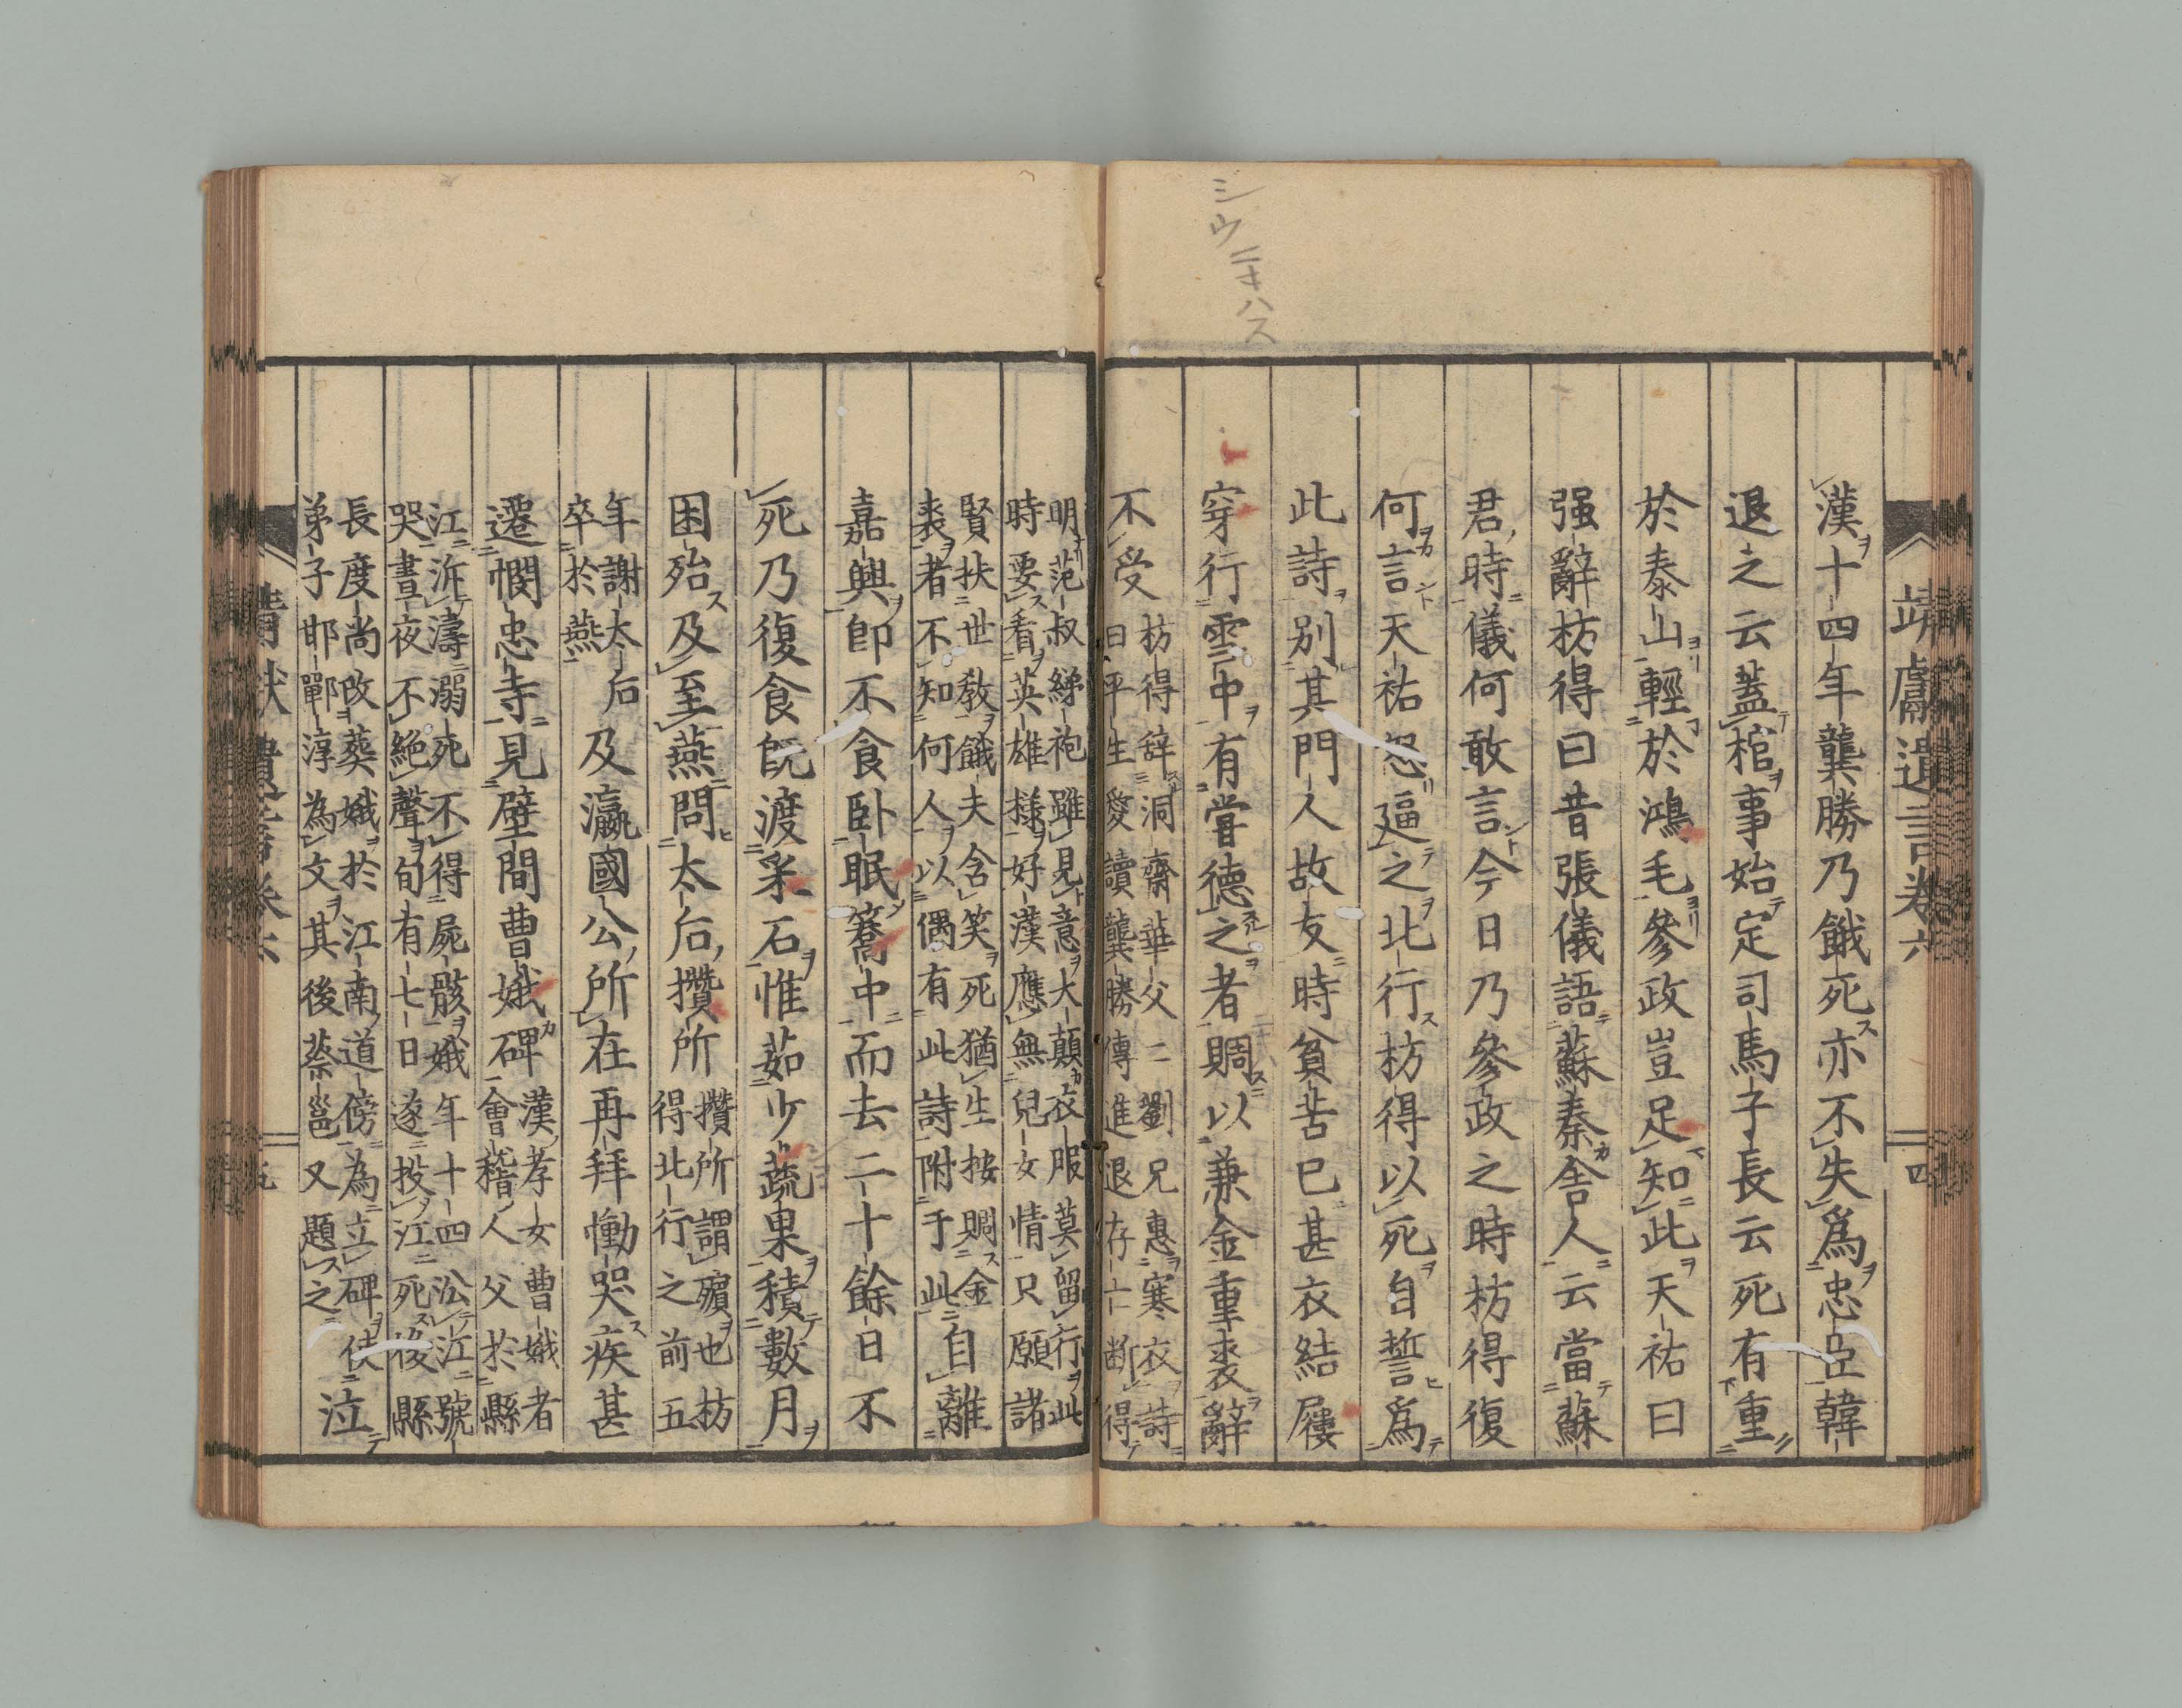 シウニキハス
靖獻遺言卷六 四
漢十四年龔勝乃餓死亦不失爲忠臣韓
退之云蓋棺事始定司馬子長云死有重
於泰山輕於鴻毛參政豈足知此天祐曰
强辭枋得曰昔張儀語蘇秦舍人云當蘇
君時儀何敢言今日乃參政之時枋得復
何言天祐怒逼之北行枋得以死自誓爲
此詩別其門人故友時貧苦已甚衣結屨
穿行雪中有嘗德之者賙以兼金重裘辭
不受
枋得辞洞齋華父二劉兄惠寒衣詩
曰平生愛讀龔勝傳進退存亡斷得
明范叔綈袍雖見意大顛衣服莫留行此
時要看英雄様好漢應無兒女情只願諸
賢扶世敎餓夫含笑死猶生按賙金
裘者不知何人以偶有此詩附于此
自離
嘉興卽不食卧眠簥中而去二十餘日不
死乃復食旣渡采石惟茹少蔬果積數月
困殆及至燕問太后攢所
攢所謂殯也枋
得北行之前五
年謝太后
卒於燕
及瀛國公所在再拜慟哭疾甚
遷憫忠寺見壁間曹娥碑
漢孝女曹娥者
會稽人父於縣
江泝濤溺死不得屍骸娥年十四㳂江號
哭晝夜不絶聲旬有七日遂投江死後縣
長度尚改葬娥於江南道傍為立碑使
弟子邯鄲淳為文其後蔡邕又題之
泣
靖獻遺言卷六 五